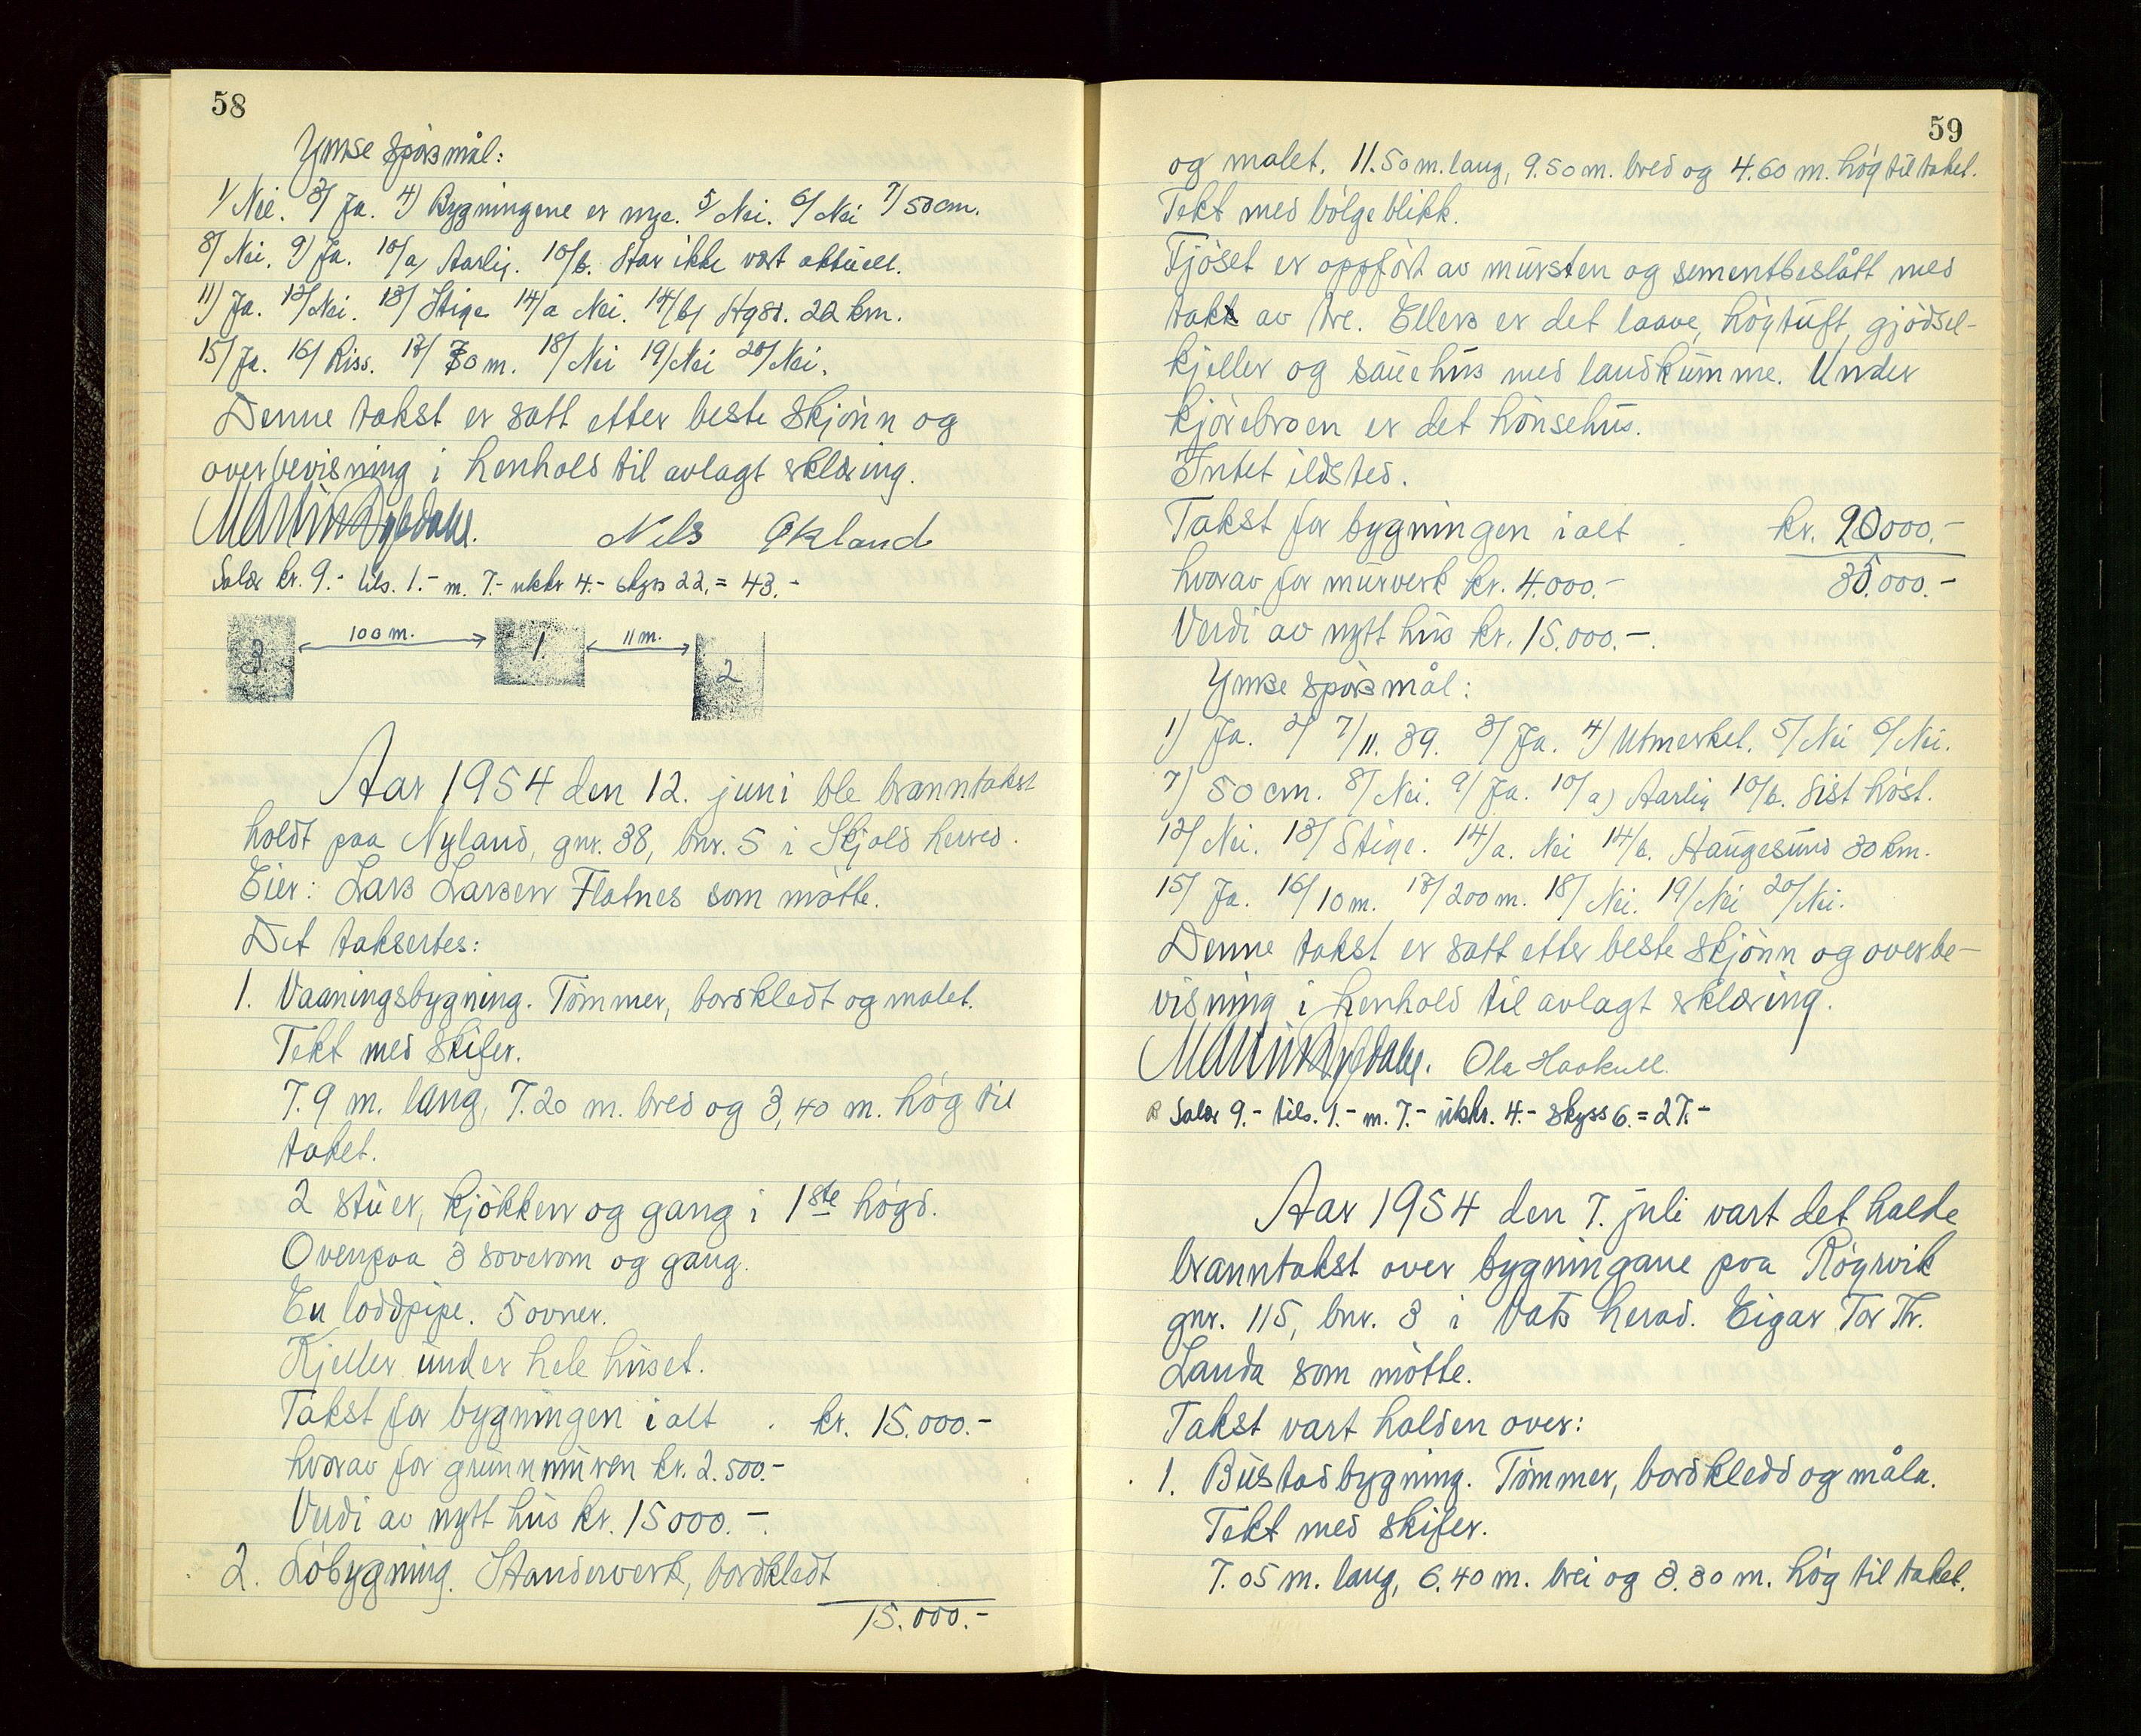 58
Ymse spörsmål:
1/ Nei. 3/ Ja. 4/ Bygningene er nye. 5/ Nei. 6/ Nei 7/ 50 cm.
8/ Nei. 9/ Ja. 10/a, Aarlig. 10/b. Har ikke vært aktuell.
11/ Ja. 12/ Nei. 13/ Stige 14/a Nei. 14/b/ Hgsd. 22 km.
15/ Ja. 16/ Riss. 17/ 30 m. 18/ Nei 19/ Nei 20/ Nei.
Denne takst er satt etter beste skjönn og
overbevisning i henhold til avlagt erklæring.
Nils Økland
Salær kr. 9.- tils. 1.- m. 7.- ukkr 4.- skyss 22. = 43.-
3 100 m. 1. 11 m. 2
Aar 1954 den 12. juni ble branntakst
holdt paa Nyland, gnr. 38, bnr. 5 i Skjold herred.
Eier: Lars Larsen Flatnes som mötte.
Det taksertes:
1. Vaaningsbygning. Tömmer, bordkledt og malet.
Tekt med skifer.
7.9 m. lang, 7.20 m. bred og 3,40 m. höy til
taket.
2 stuer, kjökken og gang i 1ste högd.
Ovenpaa 3 soverom og gang.
En loddpipe. 5 ovner.
Kjeller under hele huset.
Takst for bygningen ialt . kr. 15.000.-
hvorav for grunnmuren kr. 2.500.-
Verdi av nytt hus kr. 15000.-.
2. Löbygning. Standerverk, bordkledt
15.000.-
59
og malet. 11.50 m. lang, 9.50 m. bred og 4.60 m. höy til taket.
Tekt med bölgeblikk.
Fjöset er oppfört av mursten og sementbeslått med
takt av tre. Ellers er det laave, höytuft, gjödsel-
kjeller og sauehus med landkumme. Under
kjörebroen er det hönsehus.
Intet ildsted.
Takst for bygningen ialt . kr. 20000.-
hvorav for murverk kr. 4.000.- 35.000.-
Verdi av nytt hus kr. 15.000.-.
Ymse spörsmål:
1/ Ja. 2/ 7/11. 39. 3/ Ja. 4/ Utmerket. 5/ Nei 6/ Nei.
7/ 50 cm. 8/ Nei. 9/ Ja. 10/a) Aarlig 10/b. Sist höst.
12/ Nei. 13/ Stige. 14/a. Nei 14/b. Haugesund 30 km.
15/ Ja. 16/ 10 m. 17/ 200 m. 18/ Nei. 19/ Nei 20/ Nei.
Denne takst er satt etter beste skjönn og overbe-
visning i henhold til avlagt erklæring.
Ola Haakull.
Salær 9.- tils. 1.- m. 7.- ukkr. 4.- skyss 6. = 27.-
Aar 1954 den 7. juli vart det halde
branntakst over bygningane paa Rögrvik
gnr. 115, bnr. 3 i Vats herad. Eigar Tor Th.
Landa som mötte.
Takst vart halden over:
1. Bustadbygning. Tömmer, bordkledd og måla.
Tekt med skifer.
7.05 m. lang, 6.40 m. brei og 3.30 m. hög til taket.